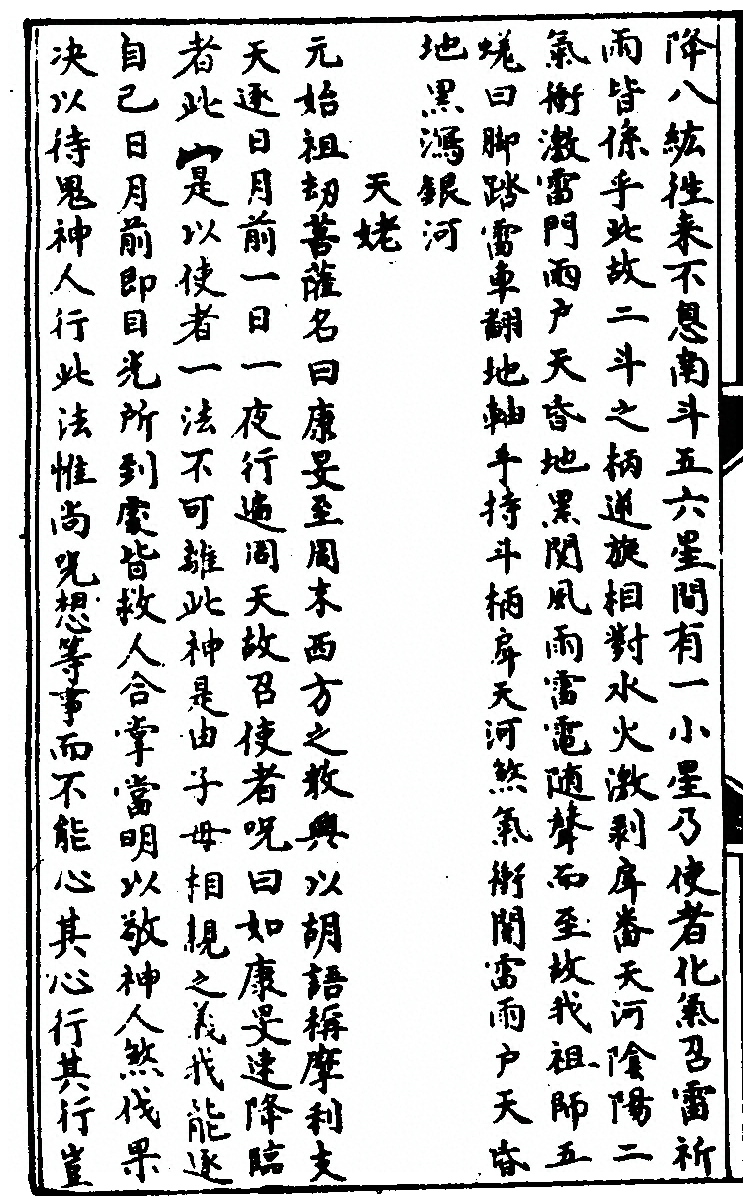 降八紘徃来不息南斗五六星間有一小星乃使者化氣召雷祈
雨皆係乎此故二斗之柄逆旋相對水火激剥戽畨天河陰陽二
氣衝激雷門雨户天昏地黑関風雨雷電随聲而至故我祖師五
蛻曰脚踏雷車翻地軸手持斗柄戽天河煞氣衝開雷雨户天昏
地黑瀉銀河
天姥
元始祖刼菩薩名曰康旻至周末西方之教興以胡語稱摩利支
天逐日月前一日一夜行遍周天故召使者呪曰如康旻速降臨
者此是以使者一法不可離此神是由子母相親之義我能逐
自己日月前即目光所到處皆救人合掌當明以敬神人煞伐果
决以待鬼神人行此法惟尚呪想等事而不能心其心行其行豈